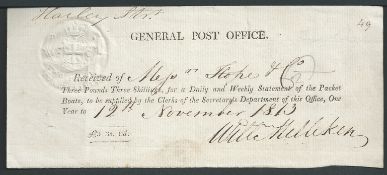 Harley Str.
49
GENERAL POST OFFICE.
Received of Mess rs Stoke & Co
Three Pounds Three Shillings, for a Daily and Weekly Statement of the Packet
Boats, to be supplied by the Clerks of the Secretary's Department of this Office, One
Year to 12th November 1813
£3. 3s. 0d.